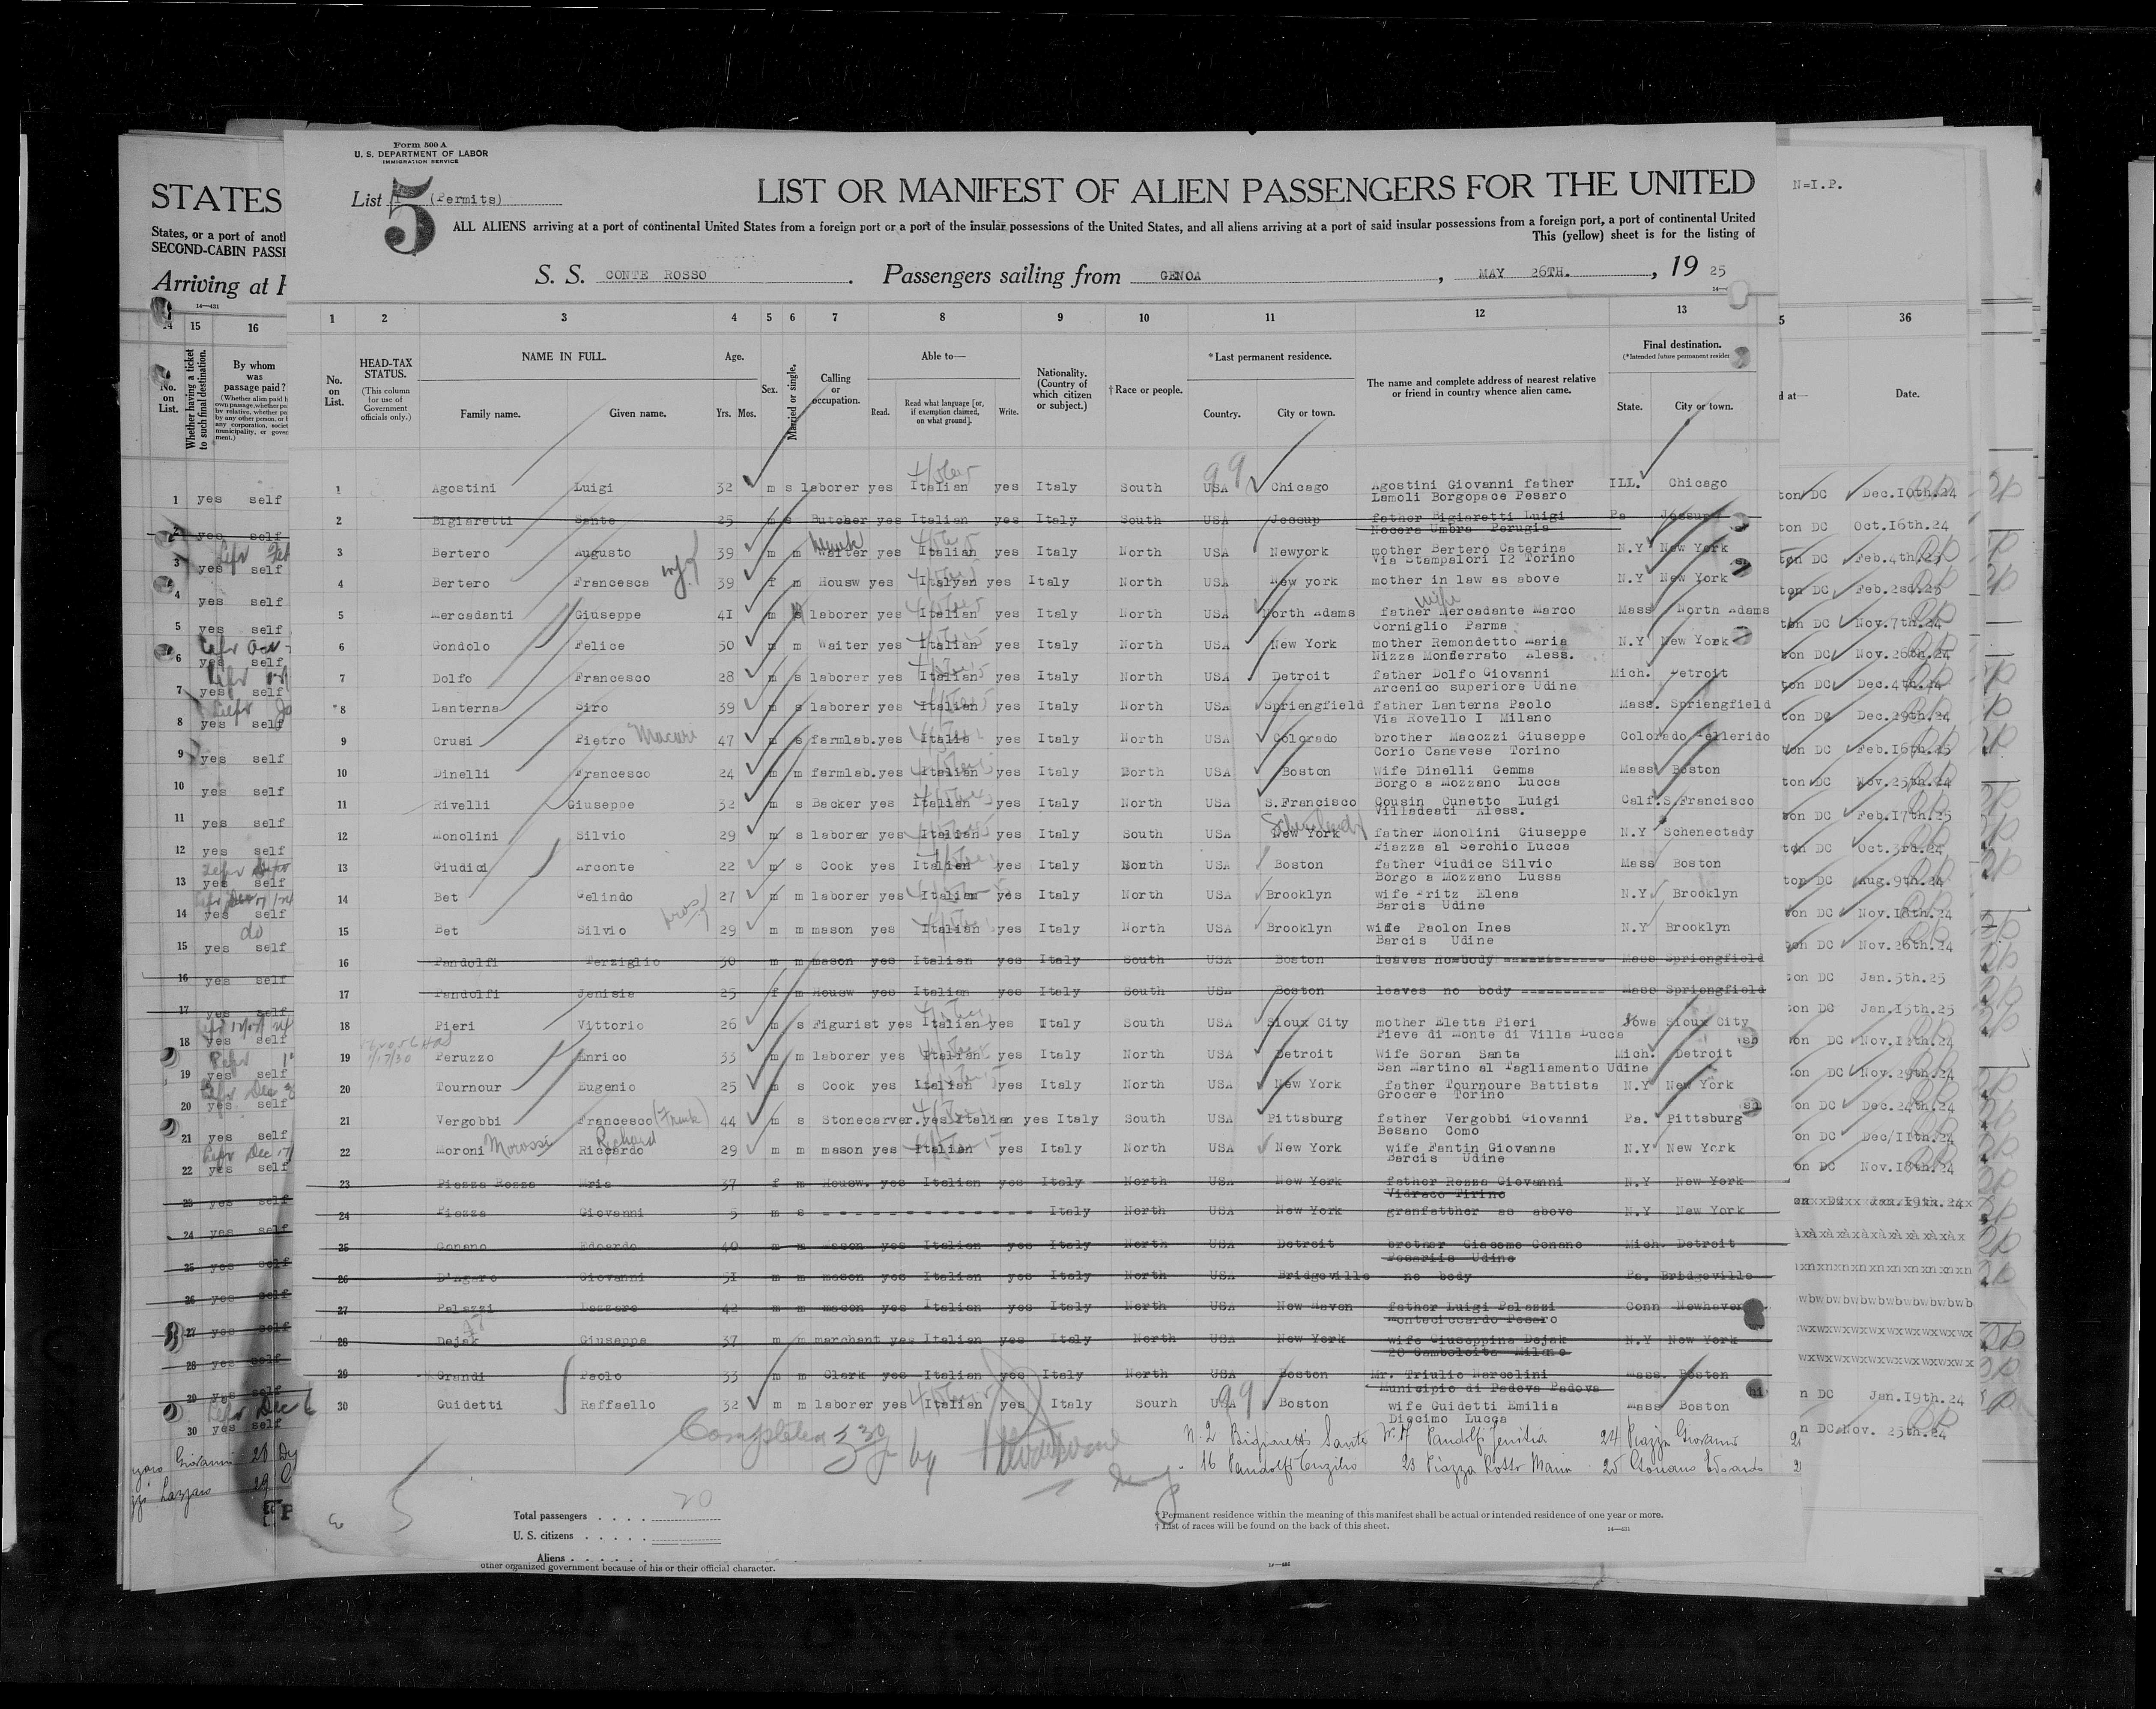 Form 500 A
U. S. DEPARTMENT OF LABOR
IMMIGRATION SERVICE
List 5 (Permits)
LIST OR MANIFEST OF ALIEN PASSENGERS FOR THE UNITED
ALL ALIENS arriving at a port of continental United States from a foreign port or a port of the insular possessions of the United States, and all aliens arriving at a port of said insular possessions from a foreign port, a port of continental United
This (yellow) sheet is for the listing of
S. S. CONTE ROSSO. Passengers sailing from GENOA, MAY 26TH., 19 25
STATES
States, or a port of anot
SECOND-CABIN PASSE
Arriving at
N=I.P.
1 2 3 4 5 6 7 8 9 10 11 12 13
No. on List.
HEAD-TAX STATUS.
(This column for use of Government officials only.)
NAME IN FULL.
Family name. Given name.
Age. Yrs. Mos.
Sex.
Married or single.
Calling or occupation.
Able to—
Read. Read what language [or, if exemption claimed, on what ground]. Write.
Nationality. (Country of which citizen or subject.)
†Race or people.
*Last permanent residence.
Country. City or town.
The name and complete address of nearest relative or friend in country whence alien came.
Final destination.
(*Intended future permanent residen
State. City or town.
15 16
No. on List.
Whether having a ticket to such final destination.
By whom was passage paid?
36
Date.
1 Agostini Luigi 32 m s laborer yes Italian yes Italy South USA Chicago Agostini Giovanni father ILL. Chicago
Lamoli Borgopace Pesaro
2 Bigiaretti Sante 25 m s Butcher yes Italian yes Italy South USA Jessup father Bigiaretti Luigi Pa Jessup
Nocera Umbra Perugia
3 Bertero Augusto 39 m m Waiter yes Italian yes Italy North USA Newyork mother Bertero Caterina N.Y New York
Via Stampalori 12 Torino
4 Bertero Francesca 39 f m Housw yes Italyan yes Italy North USA New york mother in law as above N.Y New York
5 Mercadanti Giuseppe 41 m s laborer yes Italian yes Italy North USA North Adams father wife Mercadante Marco Mass North Adams
Corniglio Parma
6 Gondolo Felice 50 m m Waiter yes Italian yes Italy North USA New York mother Remondetto Maria N.Y New York
Nizza Monferrato Aless.
7 Dolfo Francesco 28 m s laborer yes Italian yes Italy North USA Detroit father Dolfo Giovanni Mich. Detroit
Arcenico superiore Udine
8 Lanterna Siro 39 m s laborer yes Italian yes Italy North USA Spriengfield father Lanterna Paolo Mass. Spriengfield
Via Rovello I Milano
9 Crusi Pietro 47 m s farmlab. yes Italia yes Italy North USA Colorado brother Macozzi Giuseppe Colorado Pellerido
Corio Canavese Torino
10 Dinelli Francesco 24 m m farmlab. yes Italian yes Italy North USA Boston Wife Dinelli Gemma Mass Boston
Borgo a Mozzano Lucca
11 Rivelli Giuseppe 32 m s Backer yes Italian yes Italy North USA S.Francisco Cousin Cunetto Luigi Calf. S.Francisco
Villadeati Aless.
12 Monolini Silvio 29 m s laborer yes Italian yes Italy South USA New York father Monolini Giuseppe N.Y Schenectady
Piazza al Serchio Lucca
13 Giudici Arconte 22 m s Cook yes Italian yes Italy North USA Boston father Giudice Silvio Mass Boston
Borgo a Mozzano Lussa
14 Bet Gelindo 27 m m laborer yes Italian yes Italy North USA Brooklyn wife Fritz Elena N.Y Brooklyn
Barcis Udine
15 Bet Silvio 29 m m mason yes Italian yes Italy North USA Brooklyn wife Paolon Ines N.Y Brooklyn
Barcis Udine
16 Pandolfi Terziglio 30 m m mason yes Italian yes Italy South USA Boston leaves no=body Mass Spriengfield
17 Pandolfi Jenisia 25 f m Housw yes Italian yes Italy South USA Boston leaves no body Mass Spriengfield
18 Pieri Vittorio 26 m s Figurist yes Italian yes Italy South USA Sioux City mother Eletta Pieri Iowa Sioux City
Pieve di Monte di Villa Lucca
19 Peruzzo Enrico 33 m m laborer yes Italian yes Italy North USA Detroit Wife Soran Santa Mich. Detroit
San Martino al Tagliamento Udine
20 Tournour Eugenio 25 m s Cook yes Italian yes Italy North USA New York father Tournoure Battista N.Y New York
Grocere Torino
21 Vergobbi Francesco (Frank) 44 m s Stonecarver. yes Italian yes Italy South USA Pittsburg father Vergobbi Giovanni Pa. Pittsburg
Besano Como
22 Moroni Riccardo Richard 29 m m mason yes Italian yes Italy North USA New York wife Fantin Giovanna N.Y New York
Barcis Udine
23 Piazza Rosso Mria 37 f m Housw. yes Italian yes Italy North USA New York father Rosso Giovanni N.Y New York
Vidraco Tirino
24 Piazza Giovanni 5 m s Italy North USA New York granfatther as above N.Y New York
25 Gonano Edoardo 40 m m mason yes Italian yes Italy North USA Detroit brother Giacomo Gonano Mich. Detroit
Pesariis Udine
26 D'Agaro Giovanni 51 m m mason yes Italian yes Italy North USA Bridgeville no body Pa. Bridgeville
27 Palazzi Lazzaro 42 m m mason yes Italian yes Italy North USA New Haven father Luigi Palazzi Conn Newhaven
Monteciccardo Pesaro
28 Dejak Giuseppe 37 m m marchant yes Italian yes Italy North USA New York wife Giuseppina Dejak N.Y New York
20 Gamboloita Milano
29 Grandi Paolo 33 m m Clark yes Italian yes Italy North USA Boston Mr. Triulio Marcolini Mass. Boston
Municipio di Padova Padova
30 Guidetti Raffaello 32 m m laborer yes Italian yes Italy Sourh USA Boston wife Guidetti Emilia Mass Boston
Diecimo Lucca
Completed 3 30 by
N. 2 Bigiaretti Sante N. 17 Pandolfi Jenisia 24 Piazza Giovanni
16 Pandolfi Terzilio 23 Piazza Rosso Maria 25 Gonano Edoardo
Total passengers 20
U. S. citizens
Aliens
* Permanent residence within the meaning of this manifest shall be actual or intended residence of one year or more.
† List of races will be found on the back of this sheet.
other organized government because of his or their official character.
ton DC Dec.10th.24
ton DC Oct.16th.24
ton DC Feb.4th.25
ton DC Feb.2sd.25
ton DC Nov.7th.24
ton DC Nov.26th.24
ton DC Dec.4th.24
ton DC Dec.29th.24
ton DC Feb.16th.25
ton DC Nov.25th.24
ton DC Feb.17th.25
ton DC Oct.3rd.24
ton DC Aug.9th.24
ton DC Nov.18th.24
ton DC Nov.26th.24
ton DC Jan.5th.25
ton DC Jan.15th.25
on DC Nov.12th.24
on DC Nov.29th.24
on DC Dec.24th.24
on DC Dec/11th.24
on DC Nov.18th.24
n DC Jan.19th.24
n DC Nov. 25th.24